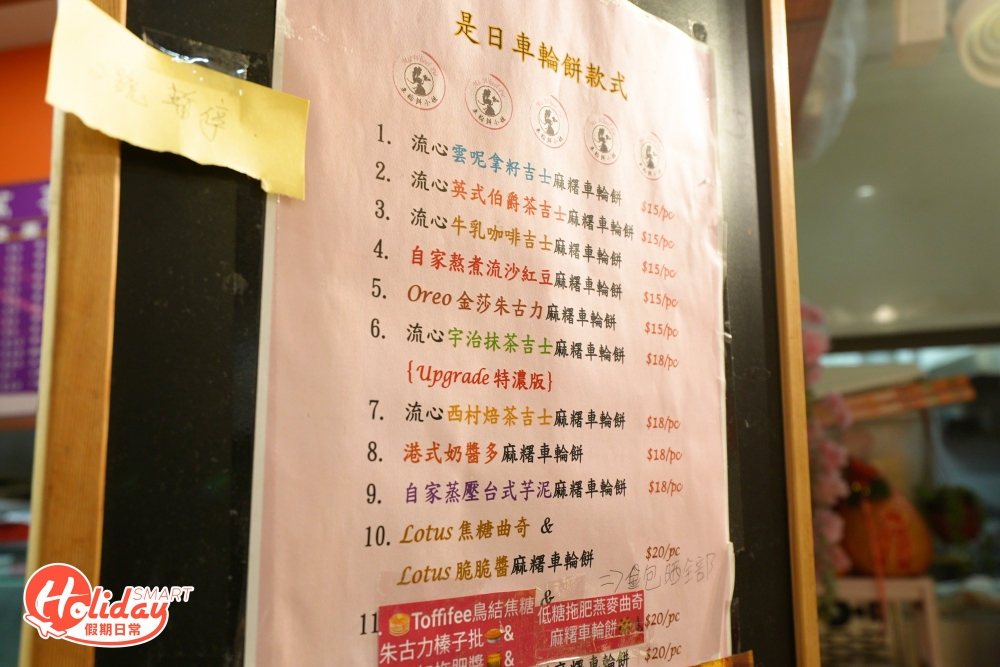 暫停
是日車輪餅款式
1. 流心雲呢拿籽吉士麻糬車輪餅 $15/pc
2. 流心英式伯爵茶吉士麻糬車輪餅 $15/pc
3. 流心牛乳咖啡吉士麻糬車輪餅 $15/pc
4. 自家熬煮流沙紅豆麻糬車輪餅 $15/pc
5. Oreo 金莎朱古力麻糬車輪餅 $15/pc
6. 流心宇治抹茶吉士麻糬車輪餅 $18/pc
{Upgrade 特濃版}
7. 流心西村焙茶吉士麻糬車輪餅 $18/pc
8. 港式奶醬多麻糬車輪餅 $18/pc
9. 自家蒸壓台式芋泥麻糬車輪餅 $18/pc
10. Lotus 焦糖曲奇 &
Lotus 脆脆醬麻糬車輪餅 $20/pc
11 &
Toffifee鳥結焦糖
朱古力榛子批 &
低糖拖肥燕麥曲奇
麻糬車輪餅
$20/pc
$20/pc
Holiday SMART
假期日常